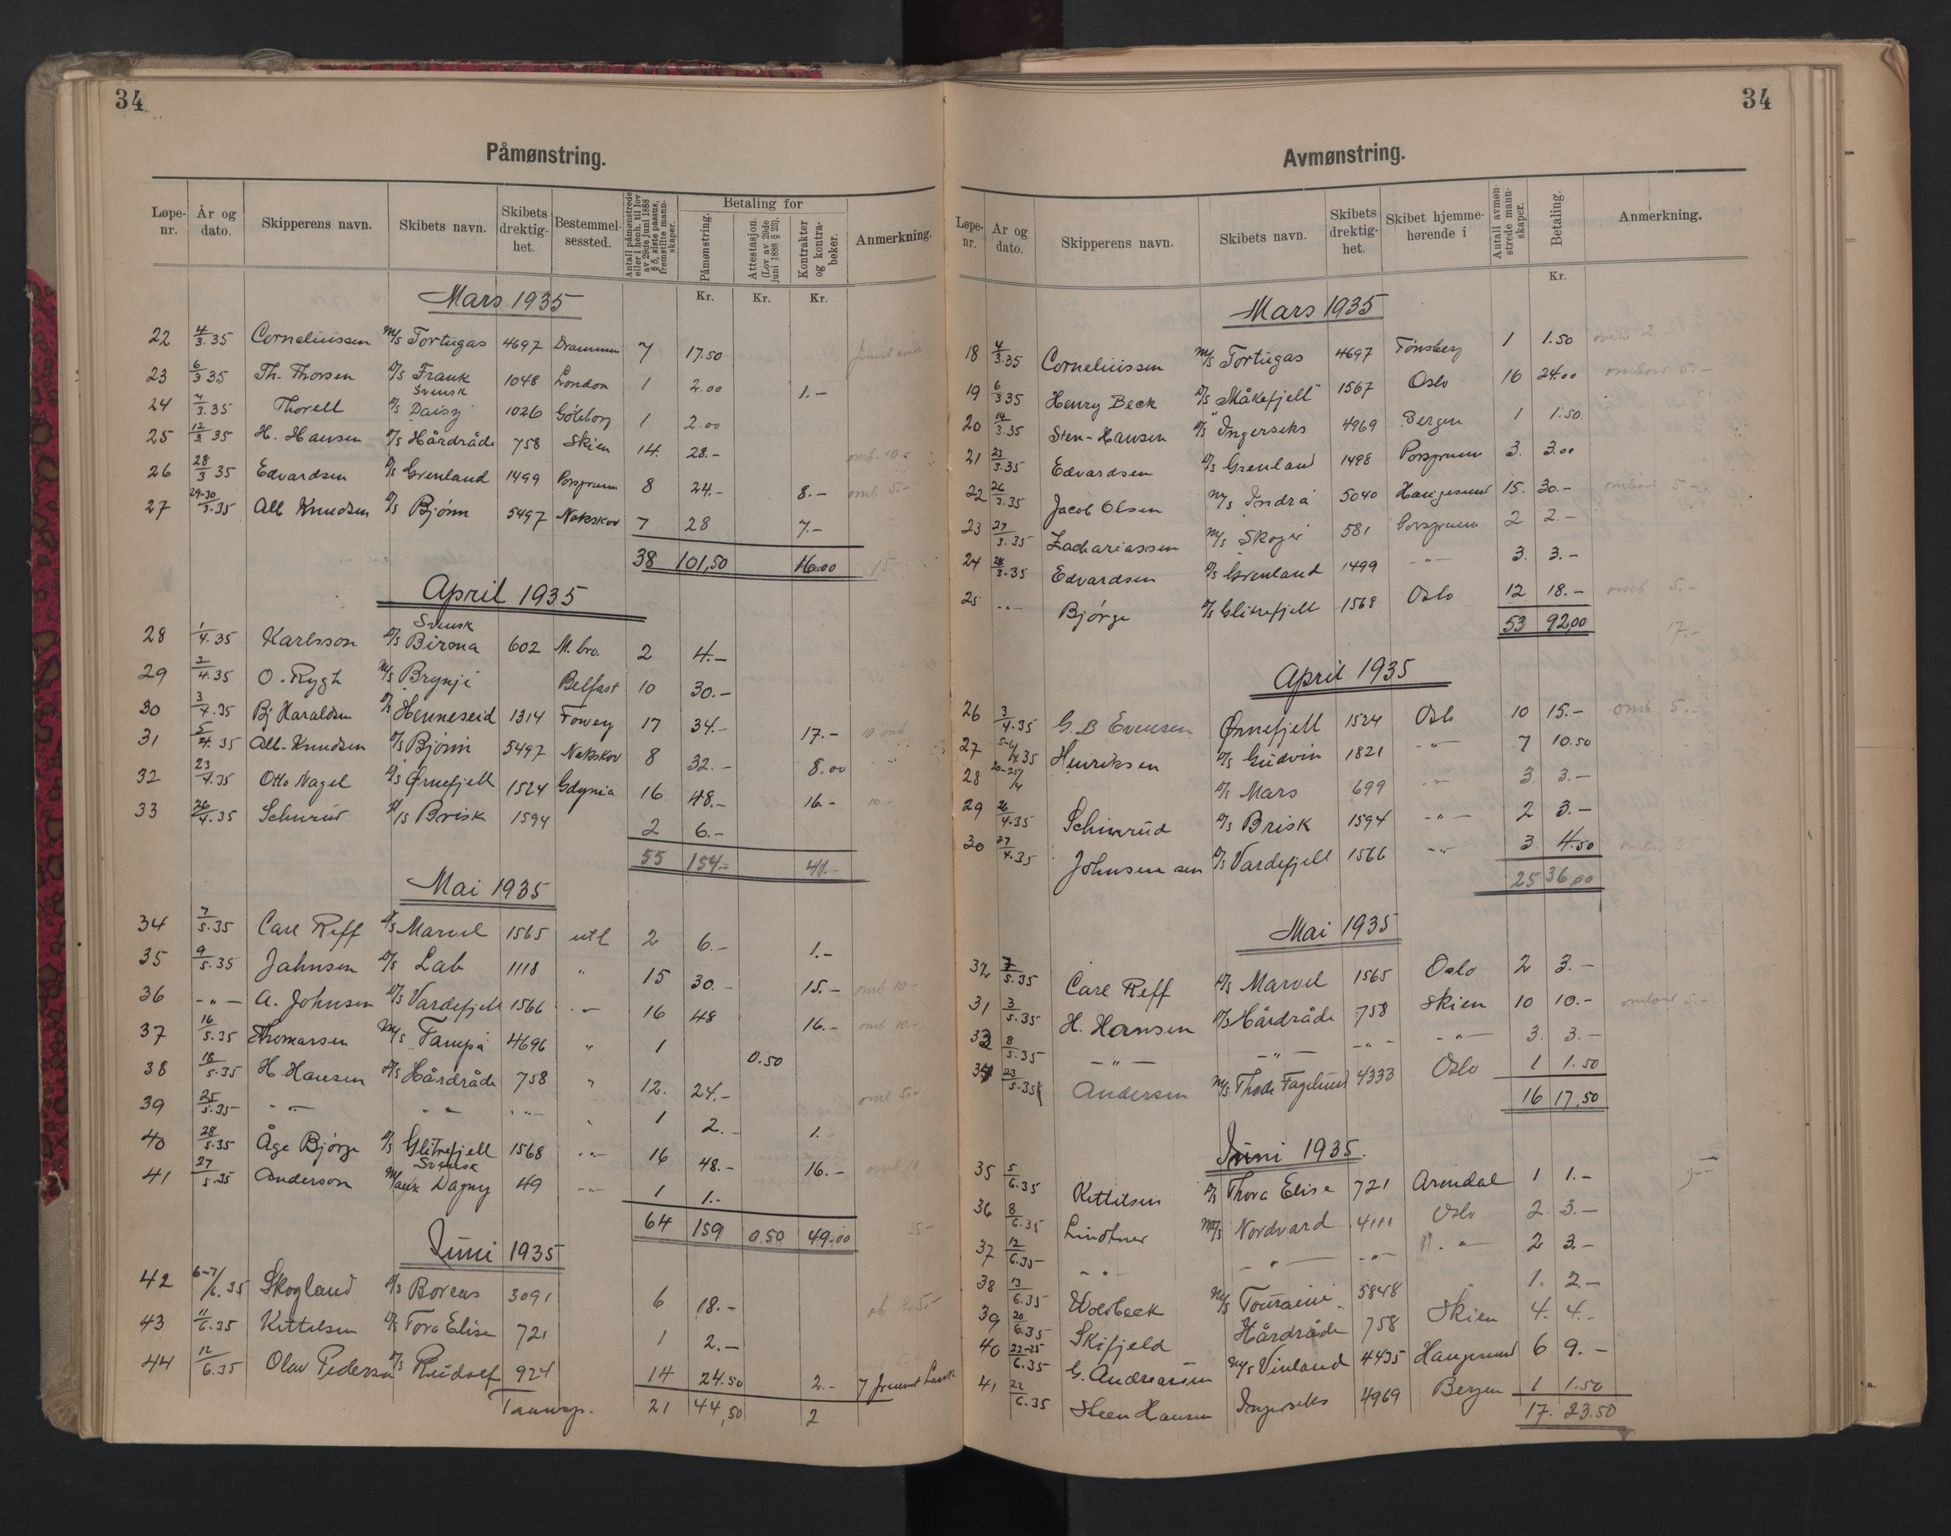 34
Påmønstring.
Løpe-nr. År og dato. Skipperens navn. Skibets navn. Skibets drektig-het. Bestemmel-sessted. Antall påmønstrede eller i henh. til lov av 29de juni 1888 § 5, siste passus, fremstillte mann-skaper. Betaling for Påmønstring. Attestasjon. (Lov av 29de juni 1888 § 23). Kontrakter og kontra-bøker. Anmerkning.
Kr. Kr. Kr.
Mars 1935
22 4/3.35 Corneliussen M/s Tortugas 4697 Drammen 7 17.50
23 6/3 35 Th. Thorsen D/s Frank 1048 London 1 2.00 1.—
Svensk
24 7/3.35 Thorell D/s Daisy 1026 Göteborg 1 2.00
25 12/3 35 H. Hansen D/s Hårdråde 758 Skien 14. 28.— omb. 10.—
26 28/3 35 Edvardsen D/s Grenland 1499 Porsgrunn 8 24.— 8.— omb 5.—
27 29-30/3.35 Alb Knudsen D/s Bjønn 5497 Nakskov 7 28 7.—
38 101,50 16.00 15.—
April 1935
Svensk
28 1/4.35 Karlsson D/s Birona 602 M.bro. 2 4.—
29 2/4.35 O. Rygh M/s Brynje Belfast 10 30.—
30 3/4.35 Bj Haraldsen D/s Henneseid 1314 Fowey 17 34.— 17.— 10 omb
31 5/4.35 Alb. Knudsen D/s Bjønn 5497 Nakskov 8 32.— 8.00
32 23/4.35 Otto Nagel D/s Ørnefjell 1524 Gdynia 16 48.— 16.— 10—
33 26/4.35 Schnrud D/s Brisk 1594 2 6.—
55 154.= 41.—
Mai 1935
34 7/5.35 Carl Reff D/s Marvel 1565 utl 2 6.— 1.—
35 9/5.35 Jahnsen D/s Lab 1118 " 15 30.— 15.— omb 10—
36 —"— A. Johnsen D/s Vardefjell 1566 —"— 16 48 16.— omb 10.—
37 16/5.35 Thomassen M/s Tampa 4696 " 1 0.50
38 18/5.35 H. Hansen D/s Hårdråde 758 " 12. 24.— omb 5.—
39 25/5.35 —"— " " —"— " 1 2.— 1.—
40 28/5.35 Åge Bjørge D/s Glitrefjell 1568 —"— 16 48.— 16.— omb 10
Svensk
41 27/5.35 Anderson M/aux Dagny 49 —"— 1 1.—
64 159 0.50 49.00 35—
Juni 1935
42 6-7/6.35 Skogland D/s Boreas 3091 6 18.—
43 11/6.35 Kittilsen D/s Tora Elise 721 1 2.—
44 12/6.35 Olav Pedersen D/s Rudolf 924 14 24.50 2.—
Transp. 21 44,50 2
34
Avmønstring.
Løpe-nr. År og dato. Skipperens navn. Skibets navn. Skibets drektig-het. Skibet hjemme-hørende i Antall avmøn-strede mann-skaper. Betaling. Anmerkning.
Kr.
Mars 1935
18 4/3.35 Corneliussen M/s Tortugas 4697 Tønsberg 1 1.50
19 6/3 35 Henry Beck D/s "Måkefjell" 1567 Oslo 16 24.00 ombord 5.—
20 14/3.35 Sten-Hansen D/s Ingerseks 4969 Bergen 1 1.50
21 23/3.35 Edvardsen D/s Grenland 1498 Porsgrunn 3. 3.00
22 26/3.35 Jacob Olsen M/s Indra 5040 Haugesund 15. 30.— ombord 5.—
23 27/3.35 Zachariassen M/s Skoger 581 Porsgrunn 2 2.—
24 28/3.35 Edvardsen D/s Grenland 1499 —"— 3. 3.—
25 —"— Bjørge D/s Glitrefjell 1568 Oslo 12 18.— omb 5.—
53 92,00 17.—
April 1935
26 3/4.35 G. B Evensen Ørnefjell 1524 Oslo 10 15.— omb. 5.—
27 5-4/4.35 Henriksen D/s Gudvin 1821 —"— 7 10.50
28 20-25/4 D/s Mars 699 —"— 3. 3.—
29 26/4.35 Schinrud D/s Brisk 1594 —"— 2 3.—
30 27/4.35 Johnsen sen D/s Vardefjell 1566 —"— 3. 4.50
25 36,00
Mai 1935
32 7/5.35 Care Reff D/s Marvel 1565 Oslo 2 3.—
31 3/5.35 H. Hansen D/s Hårdråde 758 Skien 10 10.— ombord 5.—
33 8/5.35 —"— —"— —"— —"— 3. 3.—
34 23/5.35 Andersen M/s Thode Fagelund 4333 Oslo 1 1.50
16 17,50
Juni 1935.
35 5/6.35 Kittilsen D/s Thora Elise 721 Arendal 1 1.—
36 8/6.35 Lindtner M/s Nordvard 4111 Oslo 2. 3.—
37 12/6.35— " " — " — —"— " . "— 2 3.—
38 13/6.35 Wolsbeck M/s Touraine 5848 1. 2—
39 20/6.35 Skifjeld Hårdråde 758 Skien 4. 4.—
40 22-25/6.35 G. Andreassen M/s Vinland 4435 Haugesund 6 9.—
41 22/6.35 Steen Hansen Ingerseks 4969 Bergen 1 1.50
17. 23.50